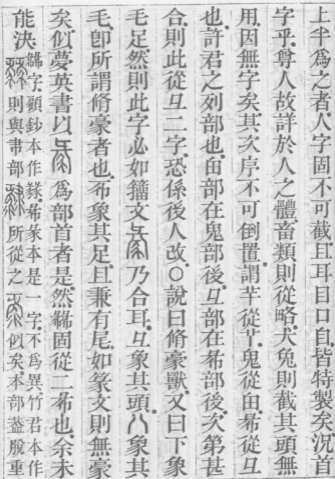 上半為之者人字固不可截且耳目口自皆特製矣況首
字乎尊人故詳於人之體畜類則從略犬兔則截其頭無
用因無字矣其次序不可倒置謂羋從𦫳鬼從甶㣇從彑
也許君之列部也甶部在鬼部後彑部在㣇部後次第甚
合則此從彑二字恐係後人改○說曰脩豪獸又曰下象
毛足然則此字必如籒文乃合耳彑象其頭八象其
毛卽所謂脩豪者也巾象其足且兼有尾如篆文則無豪
矣似夢英書以為部首者是然𢑚固從二㣇也余未
能決𢑚字顧鈔本作㣇㣇篆本是一字不為異竹君本作則與𦘒部所從之似矣本部蓋脫重